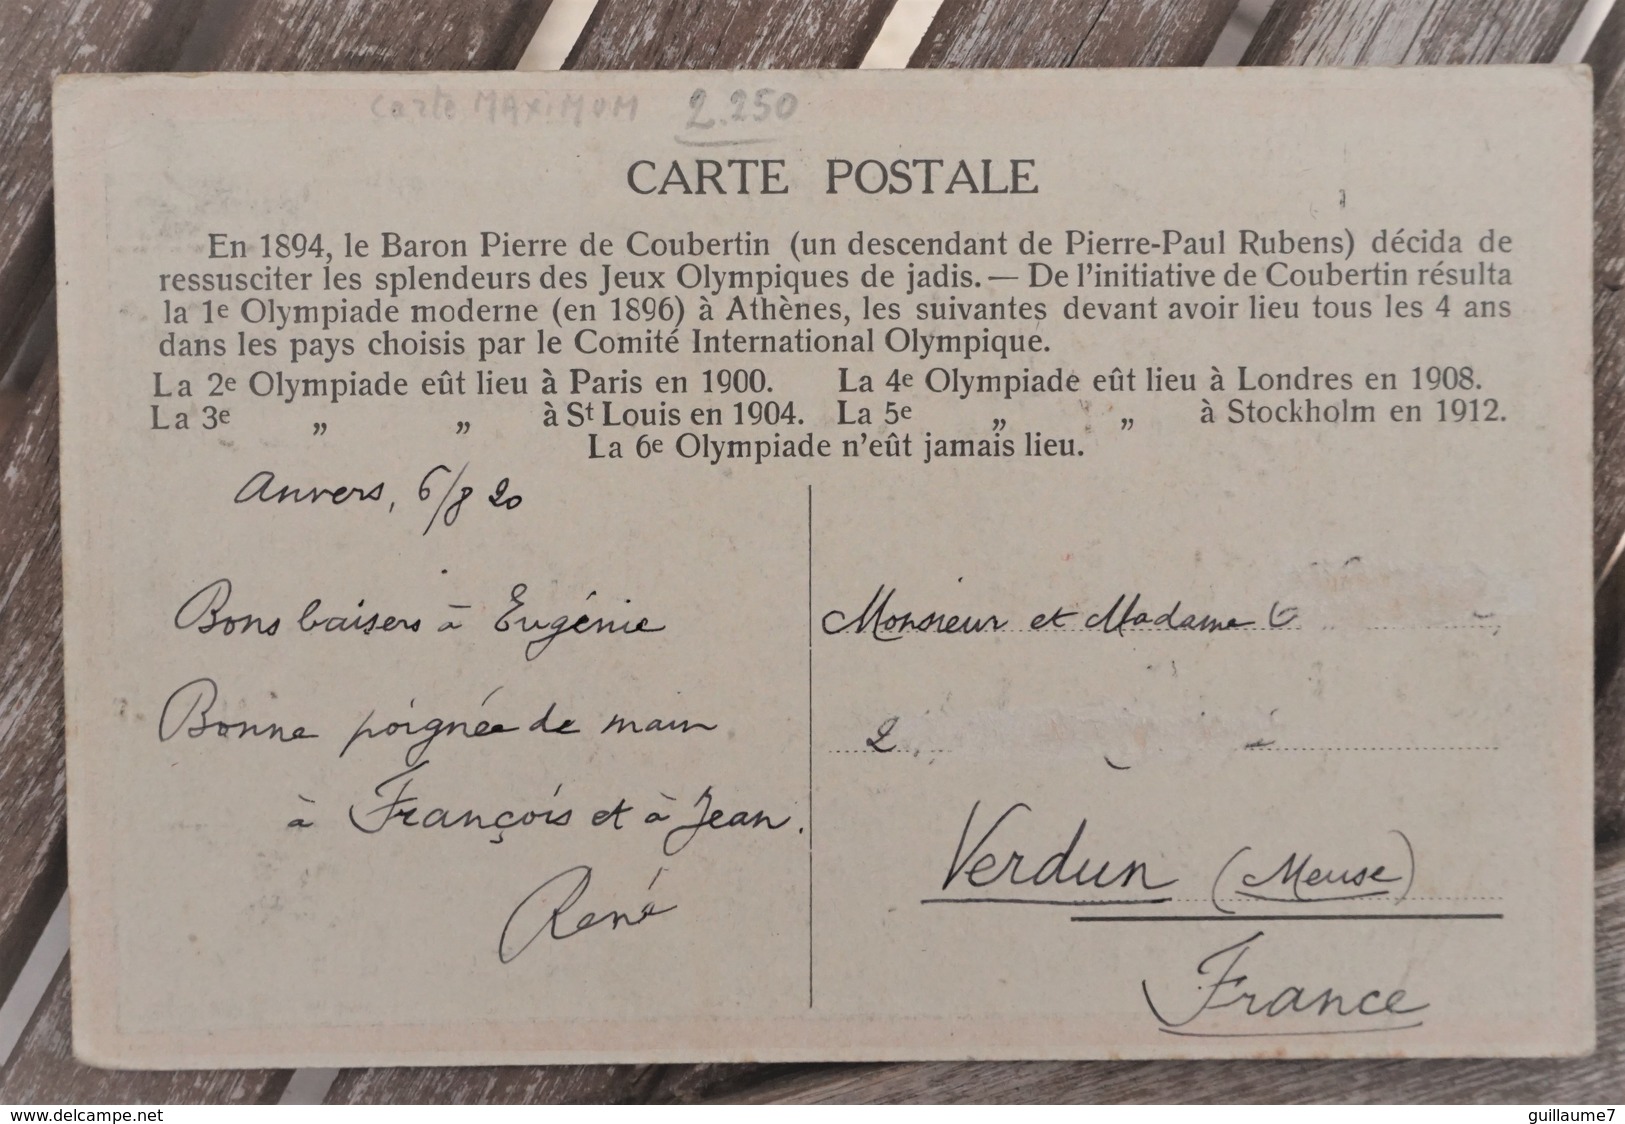 Carte MAXIMUM 2.250
CARTE POSTALE
En 1894, le Baron Pierre de Coubertin (un descendant de Pierre-Paul Rubens) décida de
ressusciter les splendeurs des Jeux Olympiques de jadis. — De l'initiative de Coubertin résulta
la 1e Olympiade moderne (en 1896) à Athènes, les suivantes devant avoir lieu tous les 4 ans
dans les pays choisis par le Comité International Olympique.
La 2e Olympiade eût lieu à Paris en 1900. La 4e Olympiade eût lieu à Londres en 1908.
La 3e „ „ à St Louis en 1904. La 5e „ „ à Stockholm en 1912.
La 6e Olympiade n'eût jamais lieu.
Anvers, 6/8 20
Bons baisers à Eugénie
Bonne poignée de main
à François et à Jean.
René
Monsieur et Madame
2
Verdun (Meuse)
France
www.delcampe.net
guillaume7